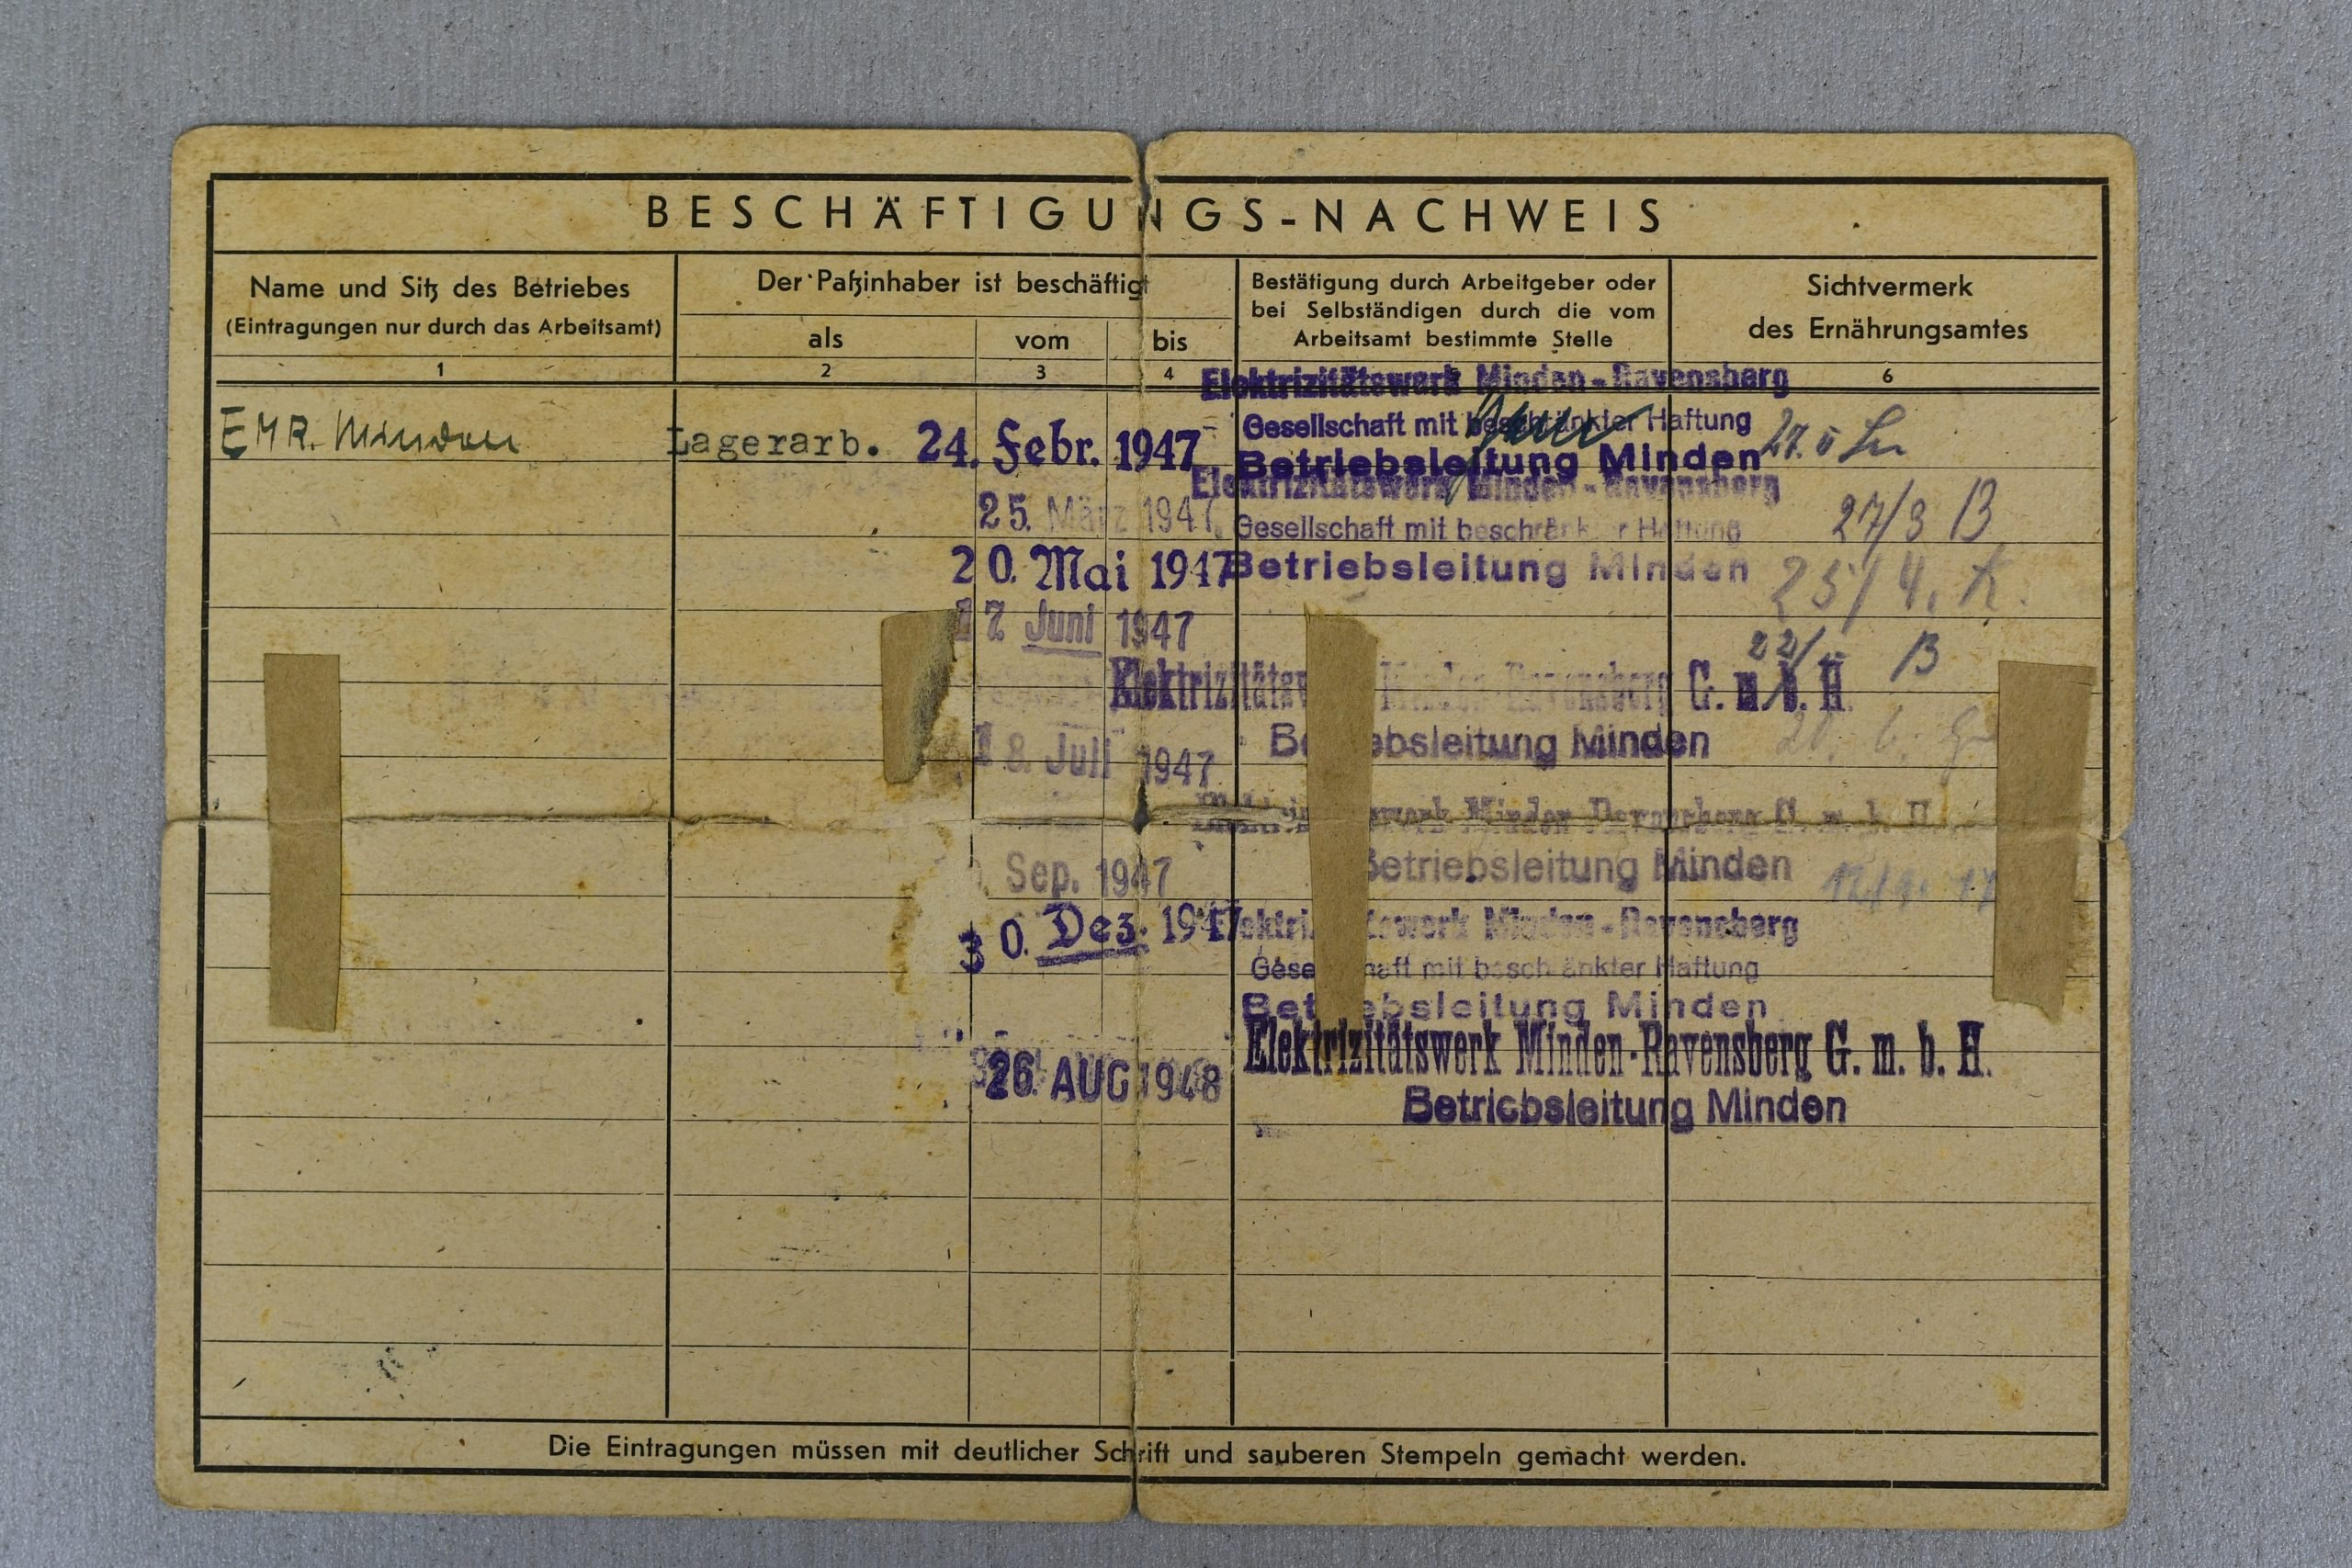 BESCHÄFTIGUNGS-NACHWEIS
Name und Sitz des Betriebes
(Eintragungen nur durch das Arbeitsamt)
Der Paßinhaber ist beschäftigt
als
vom
bis
Bestätigung durch Arbeitgeber oder
bei Selbständigen durch die vom
Arbeitsamt bestimmte Stelle
Sichtvermerk
des Ernährungsamtes
1
2
3
4
6
Elektrizitätswerk Minden-Ravensberg
Gesellschaft mit beschränkter Haftung
EMR. Minden
Lagerarb.
24. Febr. 1947
Betriebsleitung Minden
Elektrizitätswerk Minden-Ravensberg
25. März 1947
Gesellschaft mit beschränkter Haftung
27/3 B
20. Mai 1947
Betriebsleitung Minden
25/4. K.
17 Juni 1947
22/ B
Elektrizitätsw Minden-Ravensberg G. m. b. H.
18. Juli 1947
Betriebsleitung Minden
Minden Ravensberg G. m. b. H.
Sep. 1947
Betriebsleitung Minden
30. Dez. 1947
Elektrizitätswerk Minden-Ravensberg
Gesellschaft mit beschränkter Haftung
Betriebsleitung Minden
26. AUG 1948
Elektrizitätswerk Minden-Ravensberg G. m. b. H.
Betriebsleitung Minden
Die Eintragungen müssen mit deutlicher Schrift und sauberen Stempeln gemacht werden.